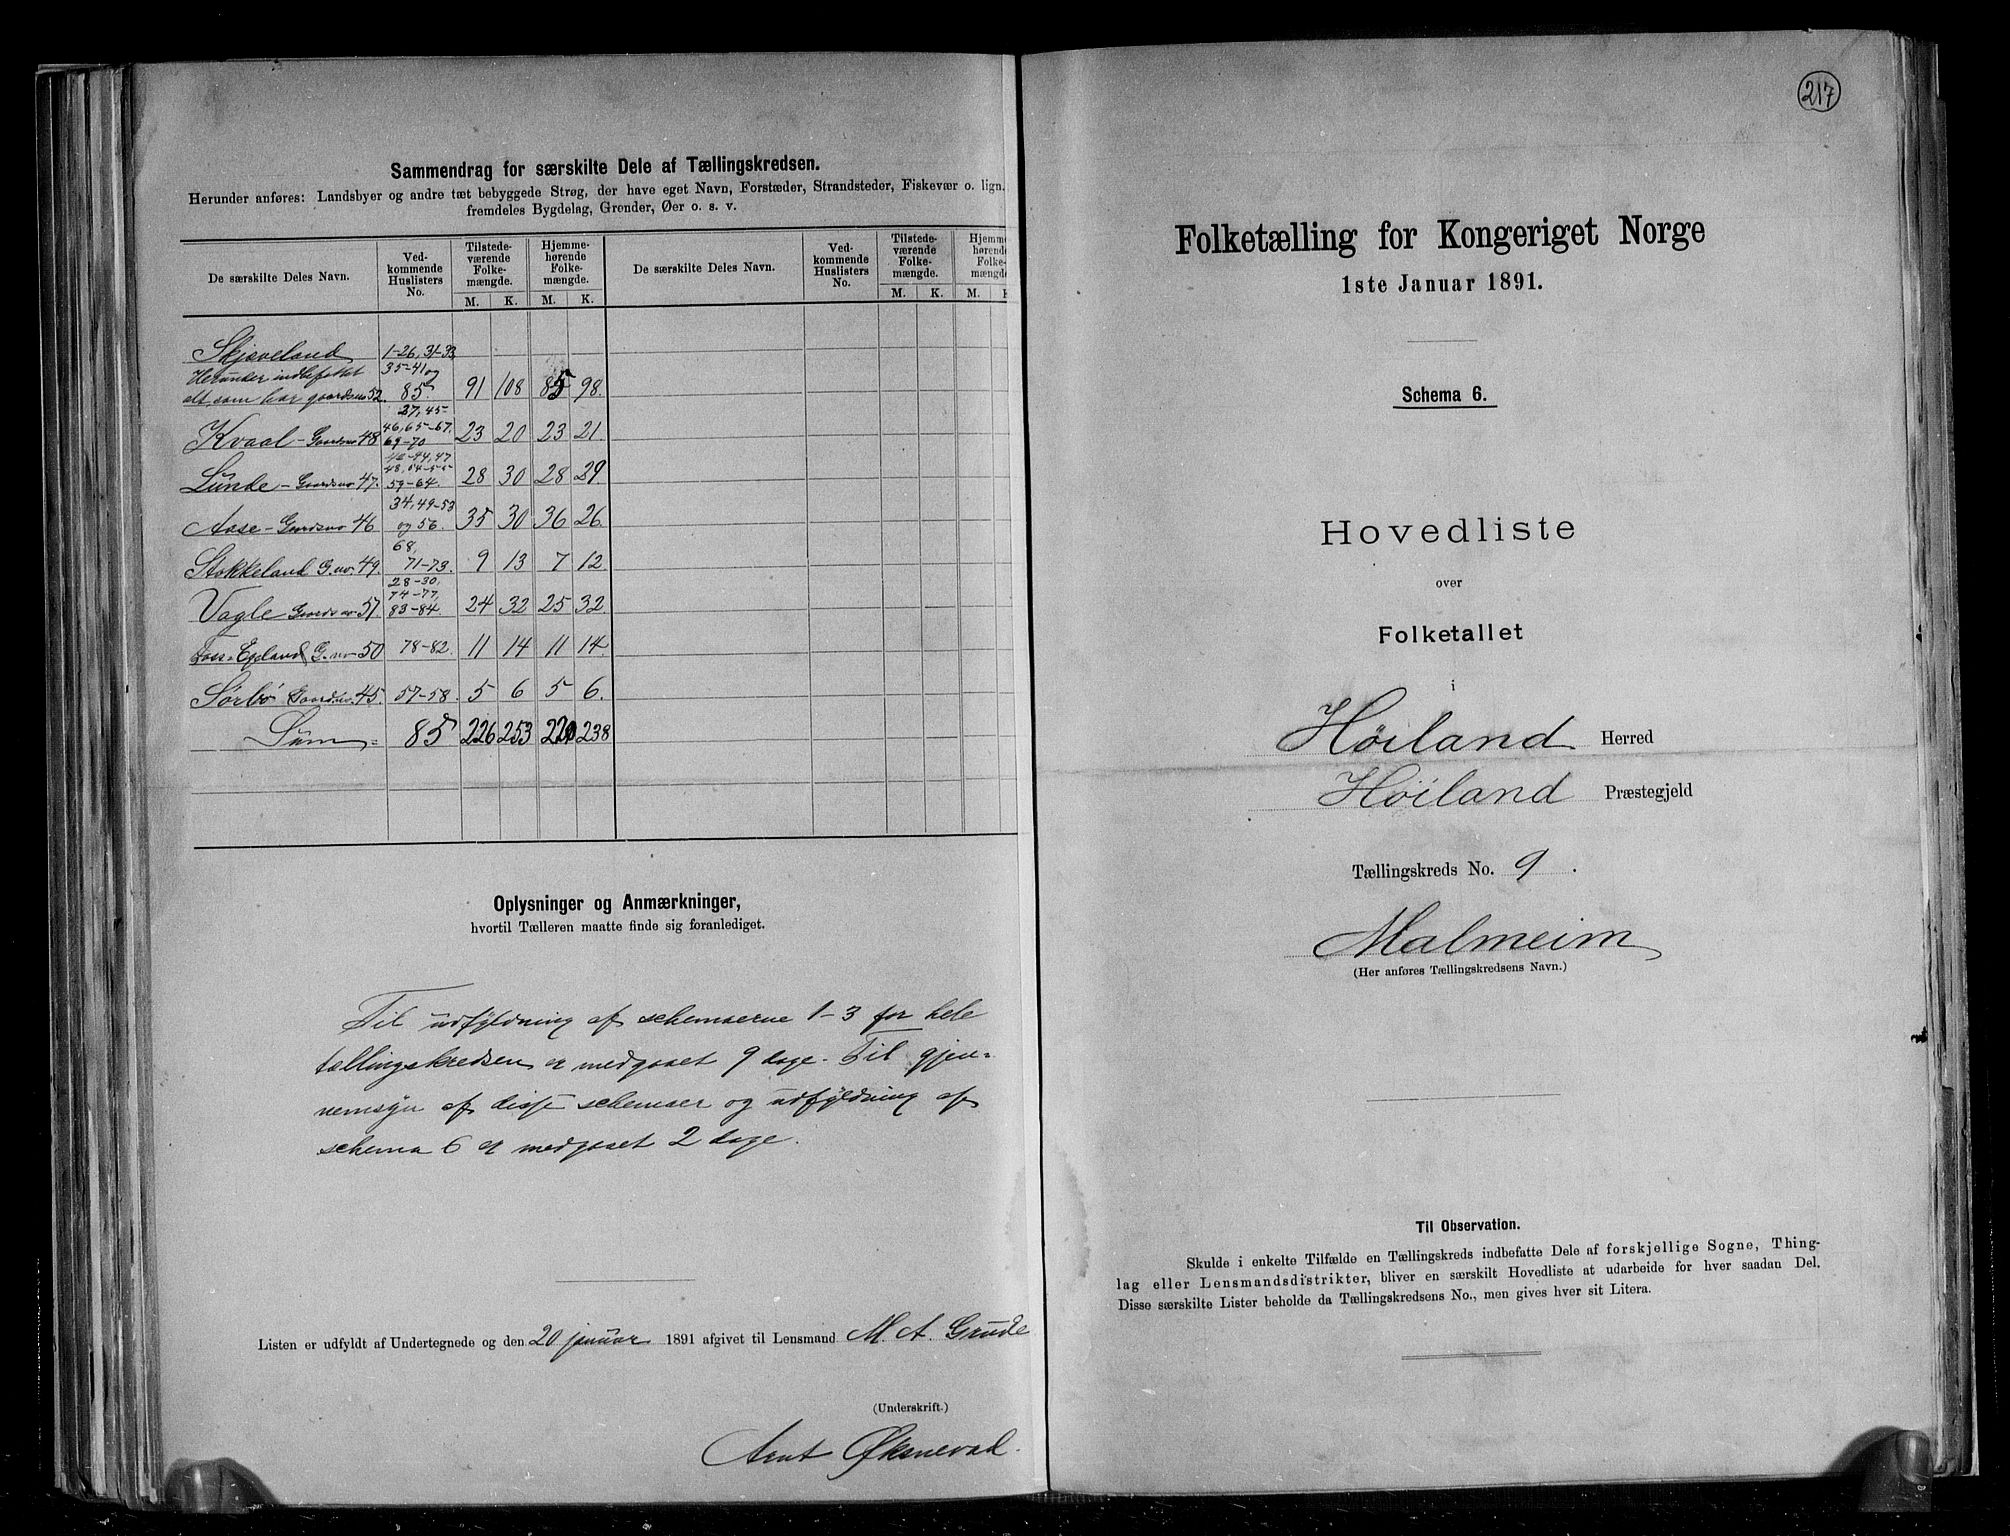 Sammendrag for særskilte Dele af Tællingskredsen.
Herunder anføres: Landsbyer og andre tæt bebyggede Strøg, der have eget Navn, Forstæder, Strandsteder, Fiskevær o. lign.
fremdeles Bygdelag, Grender, Øer o. s. v.
De særskilte Deles Navn. Ved-kommende Huslisters No. Tilstede-værende Folke-mængde. Hjemme-hørende Folke-mængde. De særskilte Deles Navn. Ved-kommende Huslisters No. Tilstede-værende Folke-mængde. Hjemm hørende Folke- mængde.
M. K. M. K. M. K. M. K
Skjæveland 1-26, 31-33
Herunder indbefattet 35-41 og
alt som har gaardsno 52. 85. 91 108 85 98.
27, 45-
Kvaal - Gaardsno 48 46, 65-67. 69-70 23 20 23 21.
42-44, 47
Lunde - Gaardsno 47. 48, 54-55 59-64. 28 30 28 29
34, 49-53
Aase - Gaardsno 46 og 56. 35 30 36 26
68,
Stokkeland G.no. 49. 71-73. 9 13 7 12
28-30,
74-77,
Vagle Gaardsno 51. 83-84. 24 32 25 32.
Foss-Egeland G.no 50 78-82. 11 14 11 14.
Sørbø Gaardsno. 45. 57-58. 5 6 5 6.
Sum = 85 226 253 220 238
Oplysninger og Anmærkninger,
hvortil Tælleren maatte finde sig foranlediget.
Til udfyldning af schemaerne 1-3 for hele
tællingskredsen er medgaaet 9 dage. Til gjen-
nemsyn af disse schemaer og udfyldning af
schema 6 er medgaaet 2 dage.
Listen er udfyldt af Undertegnede og den 20 januar 1891 afgivet til Lensmand M. A. Grude
(Underskrift.)
Arnt Øksnevad.
217
Folketælling for Kongeriget Norge
1ste Januar 1891.
Schema 6.
Hovedliste
over
Folketallet
i
Høiland Herred
Høiland Præstegjeld
Tællingskreds No. 9.
Malmeim
(Her anføres Tællingskredsens Navn.)
Til Observation.
Skulde i enkelte Tilfælde en Tællingskreds indbefatte Dele af forskjellige Sogne, Thing-
lag eller Lensmandsdistrikter, bliver en særskilt Hovedliste at udarbeide for hver saadan Del.
Disse særskilte Lister beholde da Tællingskredsens No., men gives hver sit Litera.